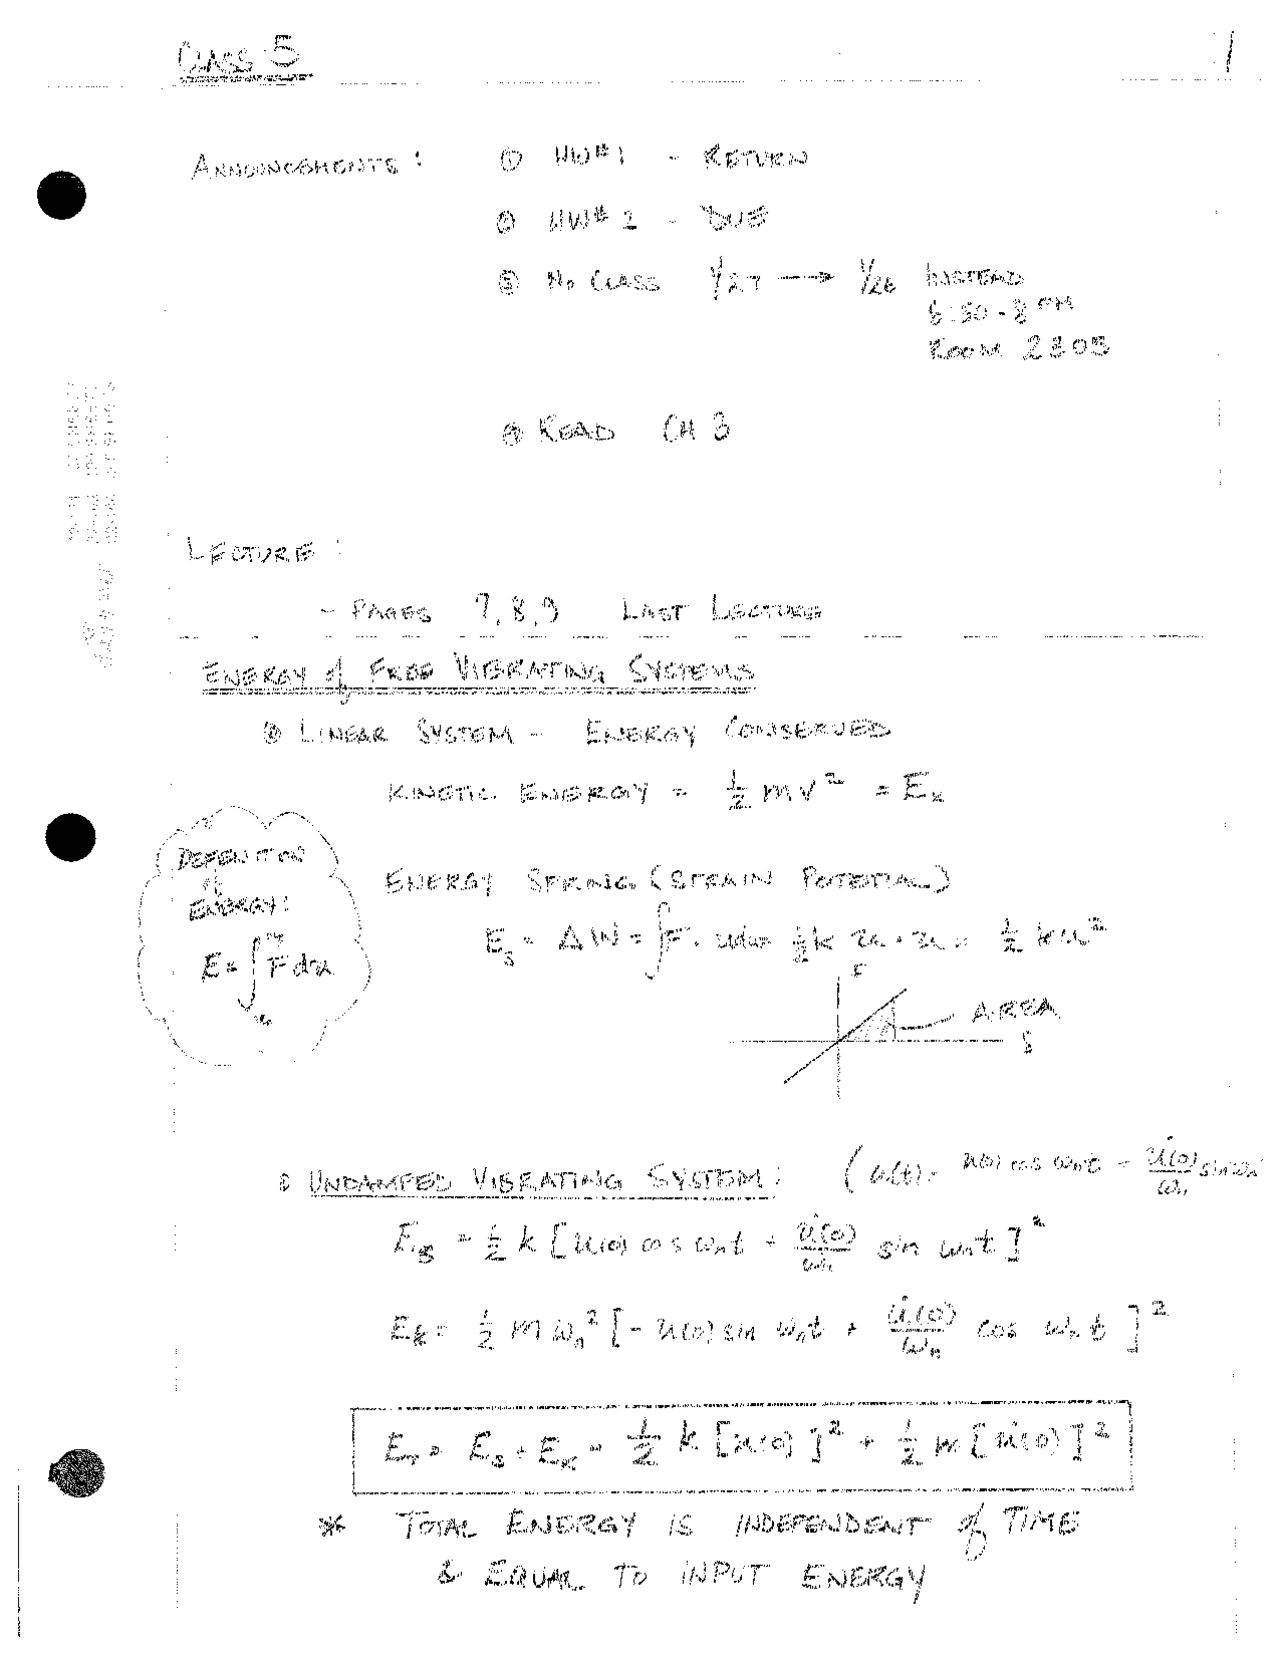 CLASS 5
1
ANNOUNCEMENTS: ① HW#1 - RETURN
② HW#2 - DUE
③ NO CLASS 1/27 → 1/26 INSTEAD
6:30-8 PM
ROOM 2303
④ READ CH 3
LECTURE:
- PAGES 7,8,9 LAST LECTURE
ENERGY of FREE VIBRATING SYSTEMS
LINEAR SYSTEM - ENERGY CONSERVED
KINETIC ENERGY = ½ mv² = E_K
DEFINITION
of
ENERGY:
E = ∫ F du
ENERGY SPRING (STRAIN POTENTIAL)
E_S = ΔW = ∫ F · u du = ½ k u · u = ½ k u²
F
AREA
δ
UNDAMPED VIBRATING SYSTEM: (u(t) = u(0) cos ω_n t + u̇(0)/ω_n sin ω_n
E_S = ½ k [u(0) cos ω_n t + u̇(0)/ω_n sin ω_n t]²
E_K = ½ m ω_n² [-u(0) sin ω_n t + u̇(0)/ω_n cos ω_n t]²
E_T = E_S + E_K = ½ k [u(0)]² + ½ m [u̇(0)]²
* TOTAL ENERGY IS INDEPENDENT of TIME
& EQUAL TO INPUT ENERGY